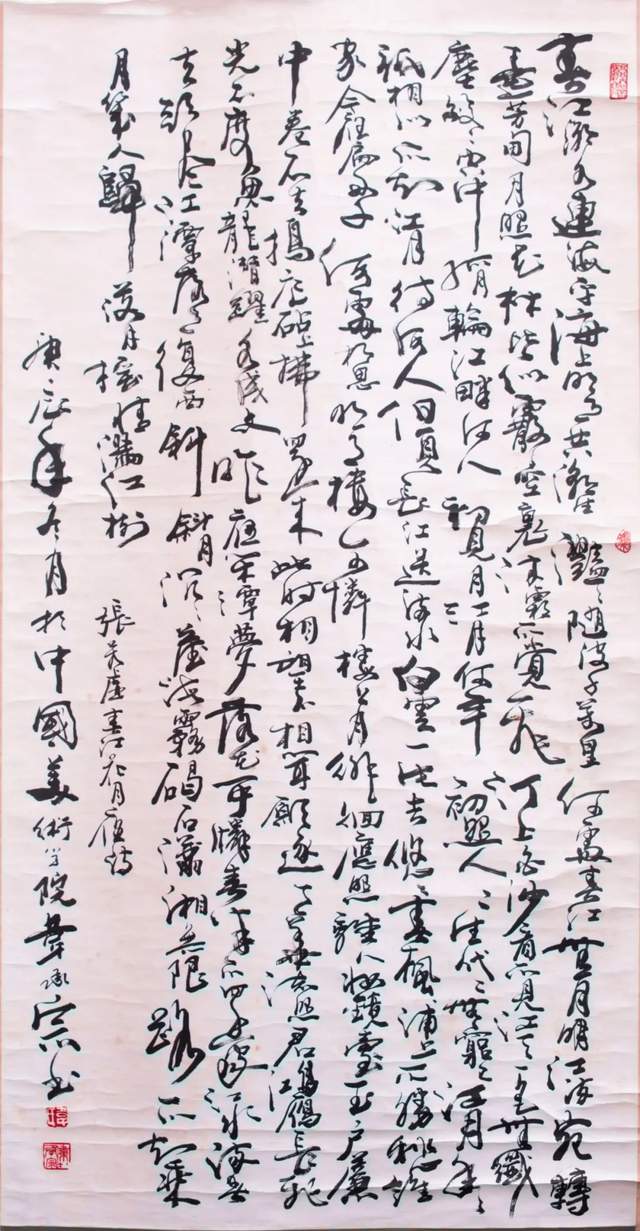 春江潮水連海平海上明月共潮生灩灩隨波千萬里何處春江無月明江流宛轉
遶芳甸月照花林皆似霰空裏流霜不覺飛汀上白沙看不見江天一色無纖
塵皎皎空中孤月輪江畔何人初見月江月何年初照人人生代代無窮已江月年年
祇相似不知江月待何人但見長江送流水白雲一片去悠悠青楓浦上不勝愁誰
家今夜扁舟子何處相思明月樓可憐樓上月徘徊應照離人妝鏡臺玉戶簾
中卷不去搗衣砧上拂還來此時相望不相聞願逐月華流照君鴻雁長飛
光不度魚龍潛躍水成文昨夜閒潭夢落花可憐春半不還家江水流春
去欲盡江潭落月復西斜斜月沉沉藏海霧碣石瀟湘無限路不知乘
月幾人歸落月搖情滿江樹
張若虛春江花月夜詩
庚辰年冬月於中國美術學院承書